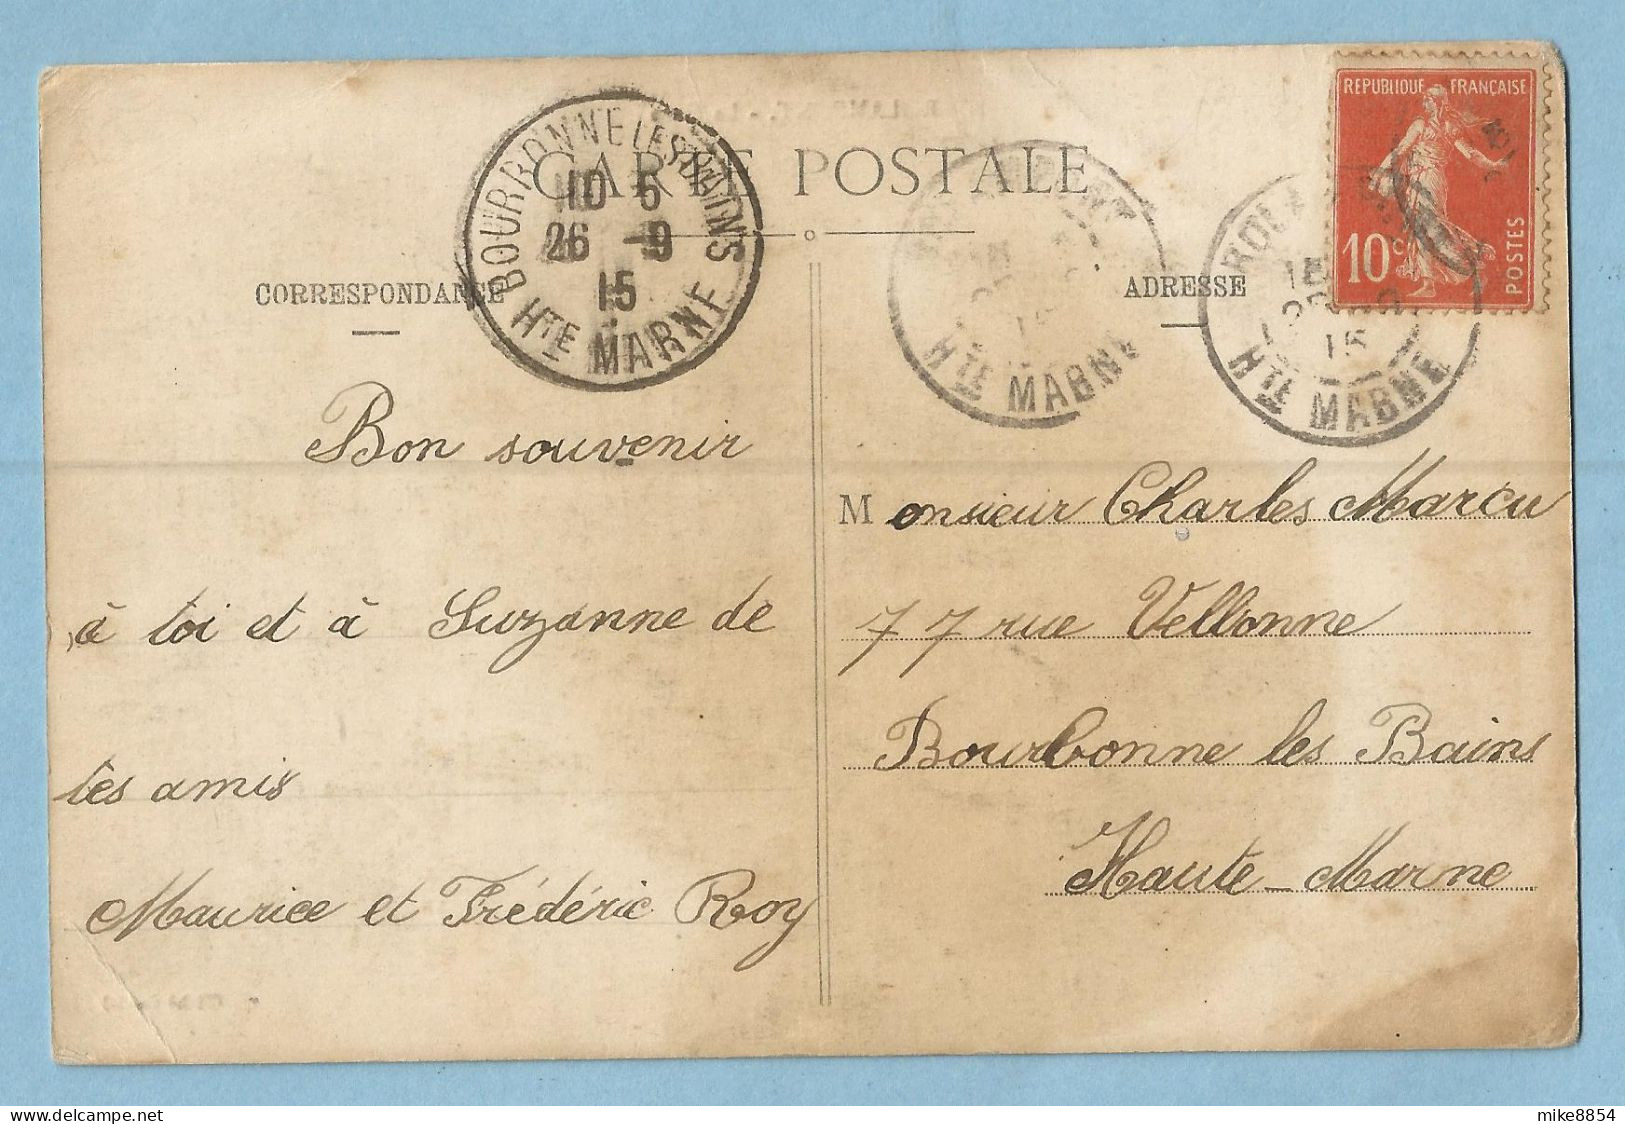 CARTE POSTALE
BOURBONNE LES BAINS
10 5
26 -9
15
HTE MARNE
HTE MARNE
15
HTE MARNE
REPUBLIQUE FRANÇAISE
10c
POSTES
CORRESPONDANCE
ADRESSE
Bon souvenir
à toi et à Suzanne de
tes amis
Maurice et Frédéric Roy
Monsieur Charles Marcu
77 rue Vellonne
Bourbonne les Bains
Haute-Marne
mike8854